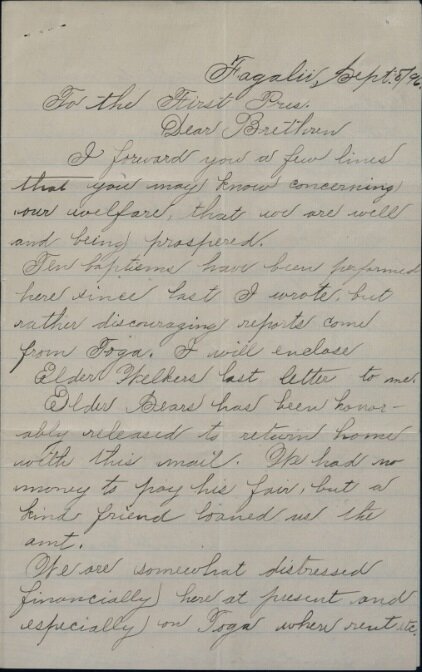 Fagalii, Sept. 5/96.
To the First Pres.
Dear Brethren
I forward you a few lines
that you may know concerning
our welfare, that we are well
and being prospered.
Ten baptisms have been performed
here since last I wrote, but
rather discouraging reports come
from Toga. I will enclose
Elder Welkers last letter to me.
Elder Bears has been honor-
ably released to return home
with this mail. We had no
money to pay his fair, but a
kind friend loaned us the
amt.
We are somewhat distressed
financially here at present and
especially on Toga where rent etc.